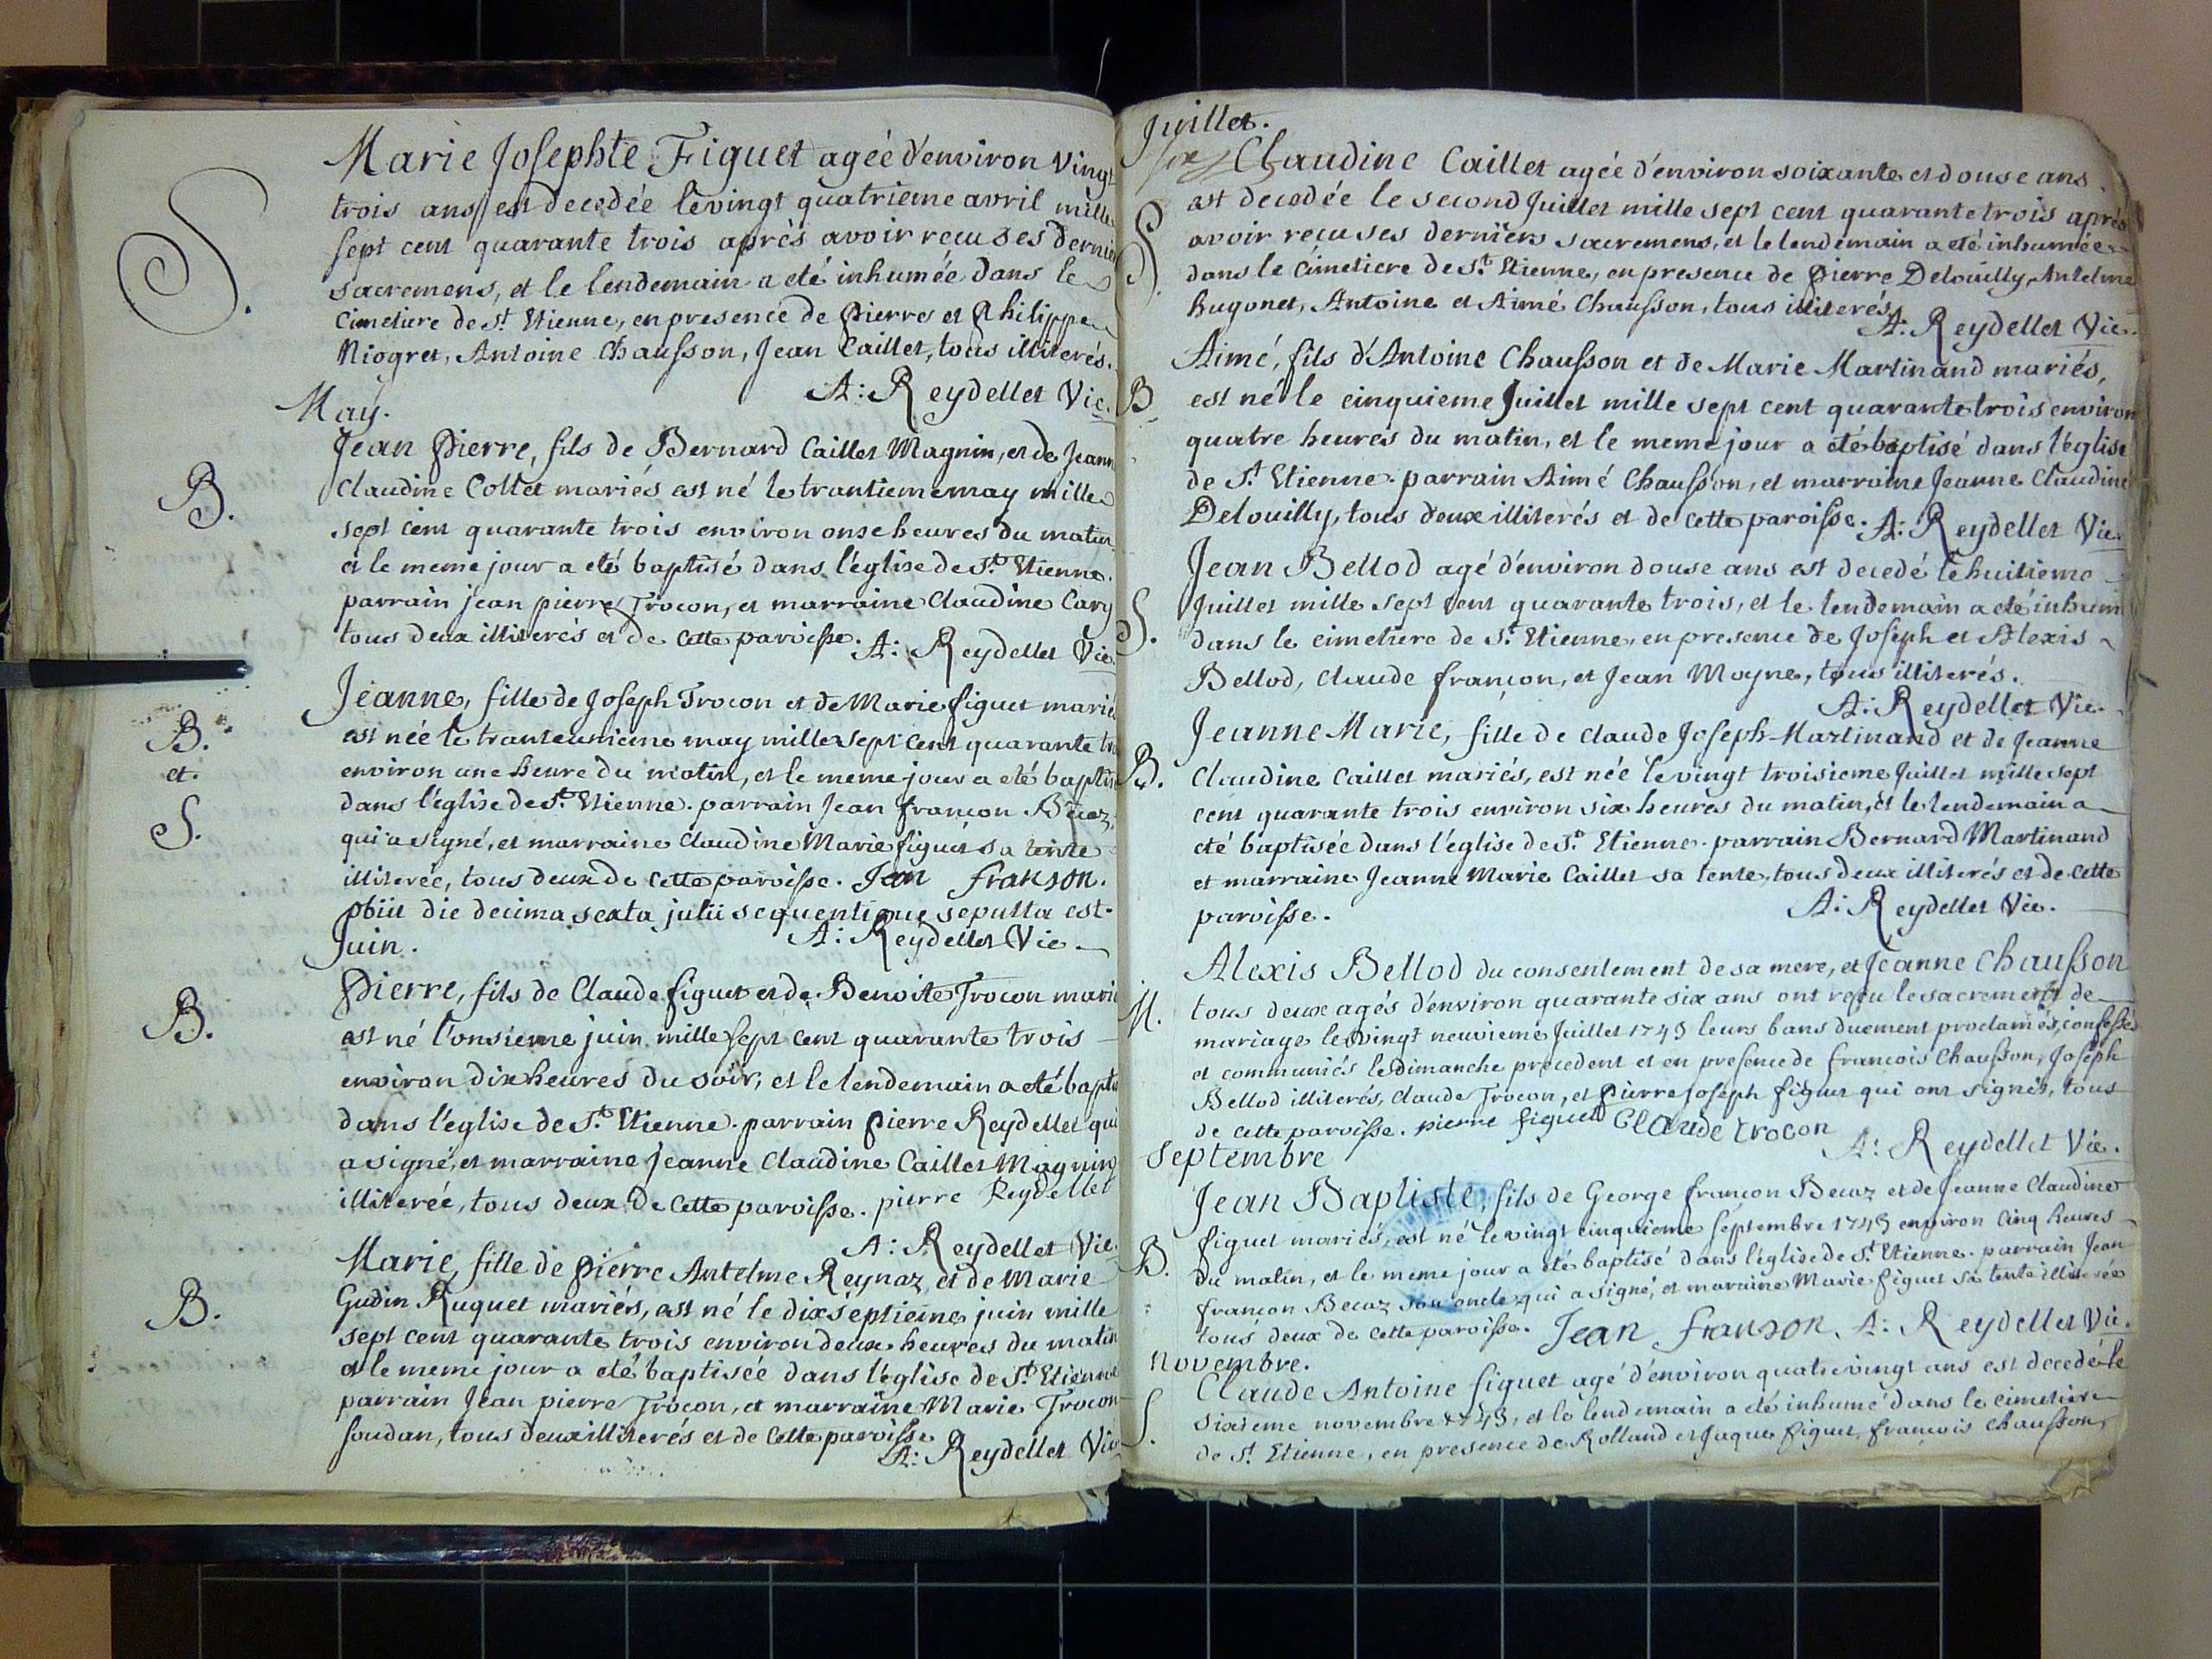 Marie Josephte Figuet agéé d'environ vingt
S.
trois ans est decedée le vingt quatrieme avril mille
sept cent quarante trois aprés avoir reçu ses dernier
sacremens, et le lendemain a eté inhumée dans le
Cimetiere de St Etienne, en presence de Pierre et Philippe
Niogret, Antoine Chausson, Jean Caillet, tous illiterés.
A: Reydellet Vic.
May.
Jean Pierre, fils de Bernard Caillet Magnin, et de Jeann
B.
Claudine Collet mariés est né le trantieme may mille
sept cent quarante trois environ onse heures du matin
et le meme jour a eté baptisé dans l'église de St Etienne.
parrain jean pierre Trocon, et marraine Claudine Cary
tous deux illiterés et de cette paroisse. A: Reydellet Vic.
Jeanne, fille de Joseph Trocon et de Marie figuet marié
B.
et.
S.
est née le tranteunieme may mille sept cent quarante tro
environ une heure du matin, et le meme jour a eté baptis
dans l'église de St Etienne. parrain Jean françon Becaz,
qui a signé, et marraine Claudine Marie figuet sa tente
illiterée, tous deux de cette paroisse. Jean franson.
obiit die decima sexta julii sequentique sepulta est.
A: Reydellet Vic
Juin.
Pierre, fils de Claude figuet et de Benoite Trocon marié
B.
est né l'onsieme juin mille sept cent quarante trois
environ dix heures du soir, et le lendemain a eté bapti
dans l'église de St Etienne. parrain Pierre Reydellet qui
a signé, et marraine Jeanne Claudine Caillet Magnin
illiterée, tous deux de cette paroisse. pierre Reydellet
A: Reydellet Vic.
Marie, fille de Pierre Antelme Reynaz et de Marie
B.
Gudin Ruquet mariés, est né le dixseptieme juin mille
sept cent quarante trois environ deux heures du matin
et le meme jour a eté baptisée dans l'église de St Etienne
parrain Jean pierre Trocon, et marraine Marie Trocon
soudan, tous deux illiterés et de cette paroisse
A: Reydellet Vic
Juillet.
Claudine Caillet agée d'environ soixante et douse ans
S.
est decedée le second Juillet mille sept cent quarante trois aprés
avoir reçu ses derniers sacremens, et le lendemain a eté inhumée
dans le cimetiere de St Etienne, en presence de Pierre Delouilly, Antelme
Bugonet, Antoine et Aimé Chausson, tous illiterés,
A: Reydellet Vic.
Aimé, fils d'Antoine Chausson et de Marie Martinand mariés,
B
est né le cinquieme Juillet mille sept cent quarante trois environ
quatre heures du matin, et le meme jour a eté baptisé dans l'église
de St Etienne. parrain Aimé Chausson, et marraine Jeanne Claudine
Delouilly, tous deux illiterés et de cette paroisse. A: Reydellet Vic.
Jean Bellod agé d'environ douse ans est decedé le huitieme
S.
Juillet mille sept cent quarante trois, et le lendemain a eté inhum
dans le cimetiere de St Etienne, en presence de Joseph et Alexis
Bellod, Claude françon, et Jean Moyne, tous illiterés.
A: Reydellet Vic.
Jeanne Marie, fille de claude Joseph Martinand et de Jeanne
B.
Claudine Caillet mariés, est née le vingt troisieme Juillet mille sept
cent quarante trois environ six heures du matin, et le lendemain a
eté baptisée dans l'église de St Etienne. parrain Bernard Martinand
et marraine Jeanne Marie Caillet sa tente, tous deux illiterés et de cette
paroisse.
A: Reydellet Vic.
Alexis Bellod du consentement de sa mere, et Jeanne Chausson
M.
tous deux agés d'environ quarante six ans ont reçu le sacrement de
mariage le vingt neuvieme Juillet 1743 leurs bans duement proclamés, confessés
et communiés le dimanche precedent et en presence de françois Chausson, Joseph
Bellod illiterés, Claude Trocon, et Pierre Joseph figuet qui ont signés, tous
de cette paroisse. pierre figuet Claude trocon
A: Reydellet Vic.
Septembre
Jean Baptiste, fils de George françon Becaz et de Jeanne Claudine
B.
figuet mariés, est né le vingt cinquieme septembre 1743 environ cinq heures
du matin, et le meme jour a eté baptisé dans l'église de St Etienne. parrain Jean
françon Becaz son oncle qui a signé, et marraine Marie figuet sa tente illiterée
tous deux de cette paroisse. Jean franson. A: Reydellet Vic.
Novembre.
Claude Antoine figuet agé d'environ quatre vingt ans est decedé le
S.
sixieme novembre 1743, et le lendemain a eté inhumé dans le cimetiere
de St Etienne, en presence de Rolland et Jaque figuet, françois Chausson,